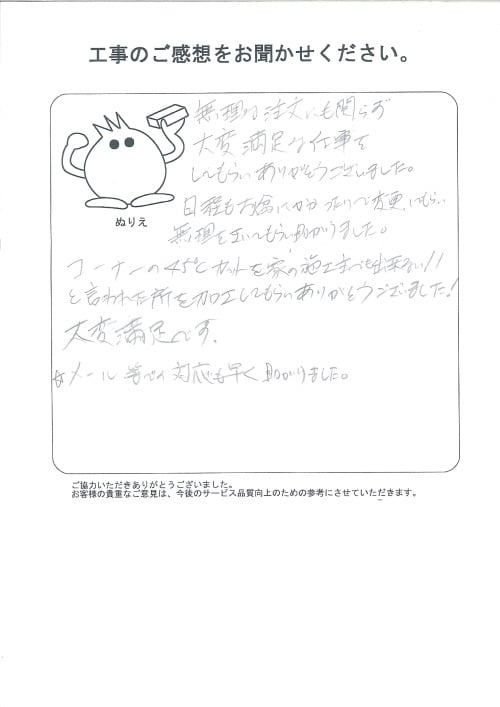 工事のご感想をお聞かせください。
無理な注文にも関らず
大変満足な仕事を
してもらいありがとうございました。
日程もお盆にかかったりで変更してもらい
無理を言いてもらい助かりました。
ぬりえ
コーナーの45℃カットを家の施工までも出来ない!!
と言われた所を加工してもらいありがとうございました!
大変満足です.
☆メール等での対応も早く助かりました。
ご協力いただきありがとうございました。
お客様の貴重なご意見は、今後のサービス品質向上のための参考にさせていただきます。